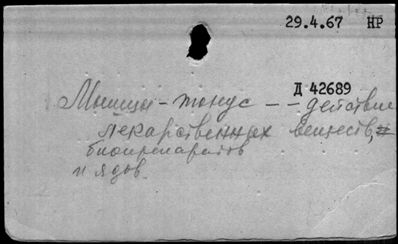 29.4.67 НР
Д 42689
Мышцы - тонус - - действие
лекарственных веществ,
биопрепаратов
и ядов.